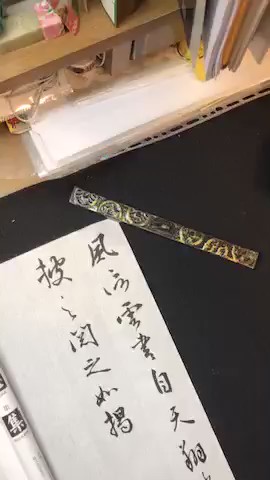 風雲書自天翔
披之閱之如揭
集